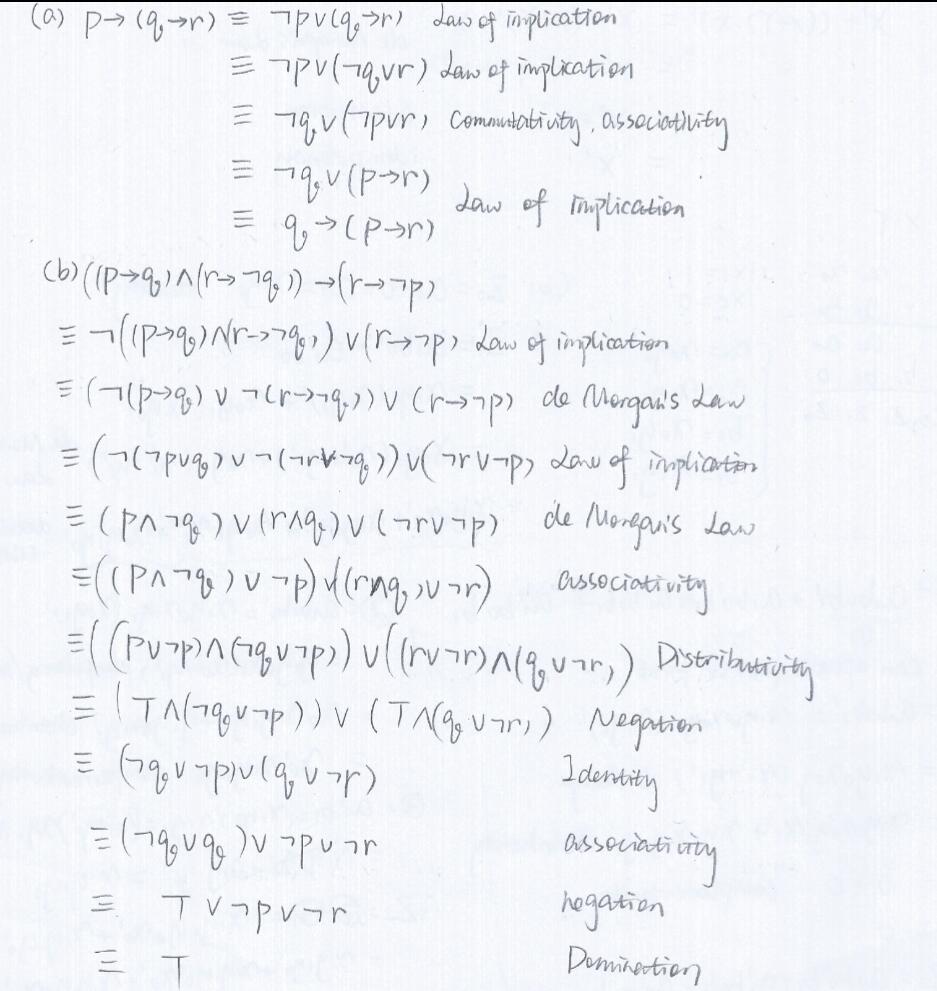 (a) p→(q→r) ≡ ¬p∨(q→r) Law of implication
≡ ¬p∨(¬q∨r) Law of implication
≡ ¬q∨(¬p∨r) commutativity, associativity
≡ ¬q∨(p→r)
≡ q→(p→r) Law of implication
(b) ((p→q)∧(r→¬q))→(r→¬p)
≡ ¬((p→q)∧(r→¬q))∨(r→¬p) Law of implication
≡ (¬(p→q)∨¬(r→¬q))∨(r→¬p) de Morgan's Law
≡ (¬(¬p∨q)∨¬(¬r∨¬q))∨(¬r∨¬p) Law of implication
≡ (p∧¬q)∨(r∧q)∨(¬r∨¬p) de Morgan's Law
≡ ((p∧¬q)∨¬p)∨((r∧q)∨¬r) associativity
≡ ((p∨¬p)∧(¬q∨¬p))∨((r∨¬r)∧(q∨¬r)) Distributivity
≡ (T∧(¬q∨¬p))∨(T∧(q∨¬r)) Negation
≡ (¬q∨¬p)∨(q∨¬r) Identity
≡ (¬q∨q)∨¬p∨¬r associativity
≡ T∨¬p∨¬r negation
≡ T Domination